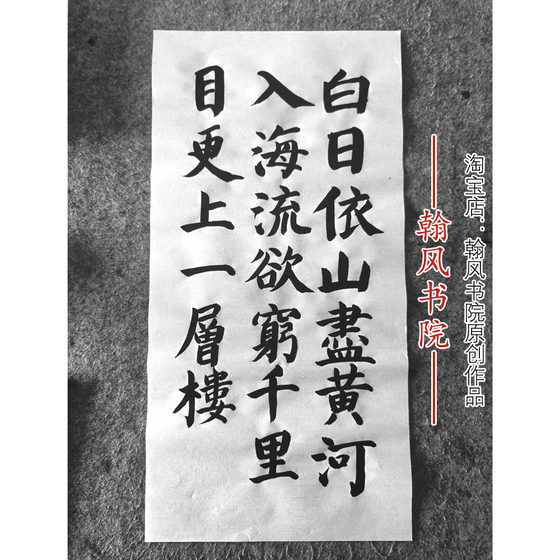 白日依山盡黄河
入海流欲窮千里
目更上一層樓
翰风书院
淘宝店：翰风书院原创作品